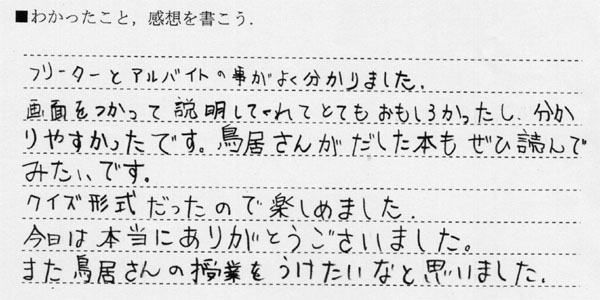 ■わかったこと，感想を書こう.
フリーターとアルバイトの事がよく分かりました.
画面をつかって説明してくれてとてもおもしろかったし、分か
りやすかったです。鳥居さんがだした本もぜひ読んで
みたいです。
クイズ形式だったので楽しめました.
今日は本当にありがとうございました。
また鳥居さんの授業をうけたいなと思いました.